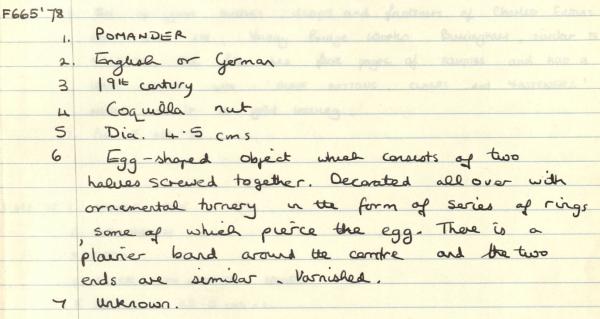 F665'78
1. POMANDER
2. English or German
3 19th century
4 Coquilla nut
5 Dia. 4.5 cms
6 Egg-shaped object which consists of two
halves screwed together. Decorated all over with
ornamental turnery in the form of series of rings
, some of which pierce the egg. There is a
plainer band around the centre and the two
ends are similar. Varnished.
7 Unknown.